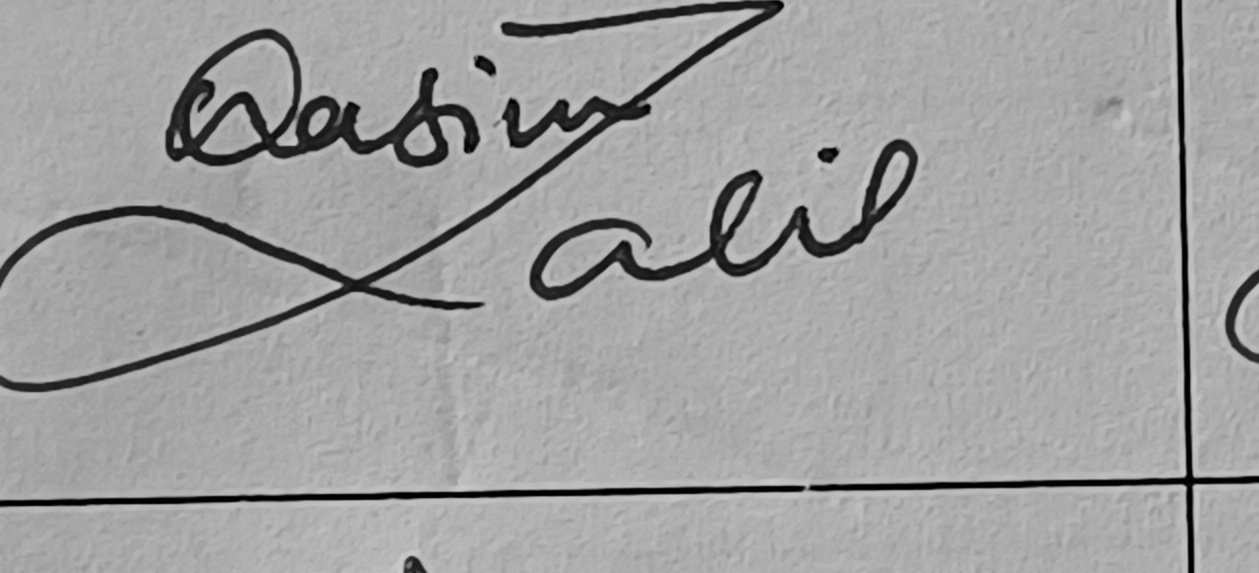 Qasim
Jalil